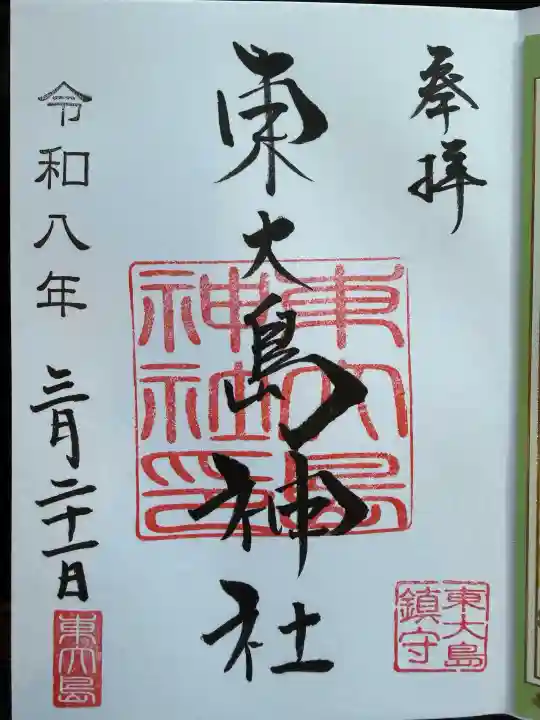 奉拝
東大島神社
東大島神社印
令和八年 三月二十一日
東大島鎮守
東大島